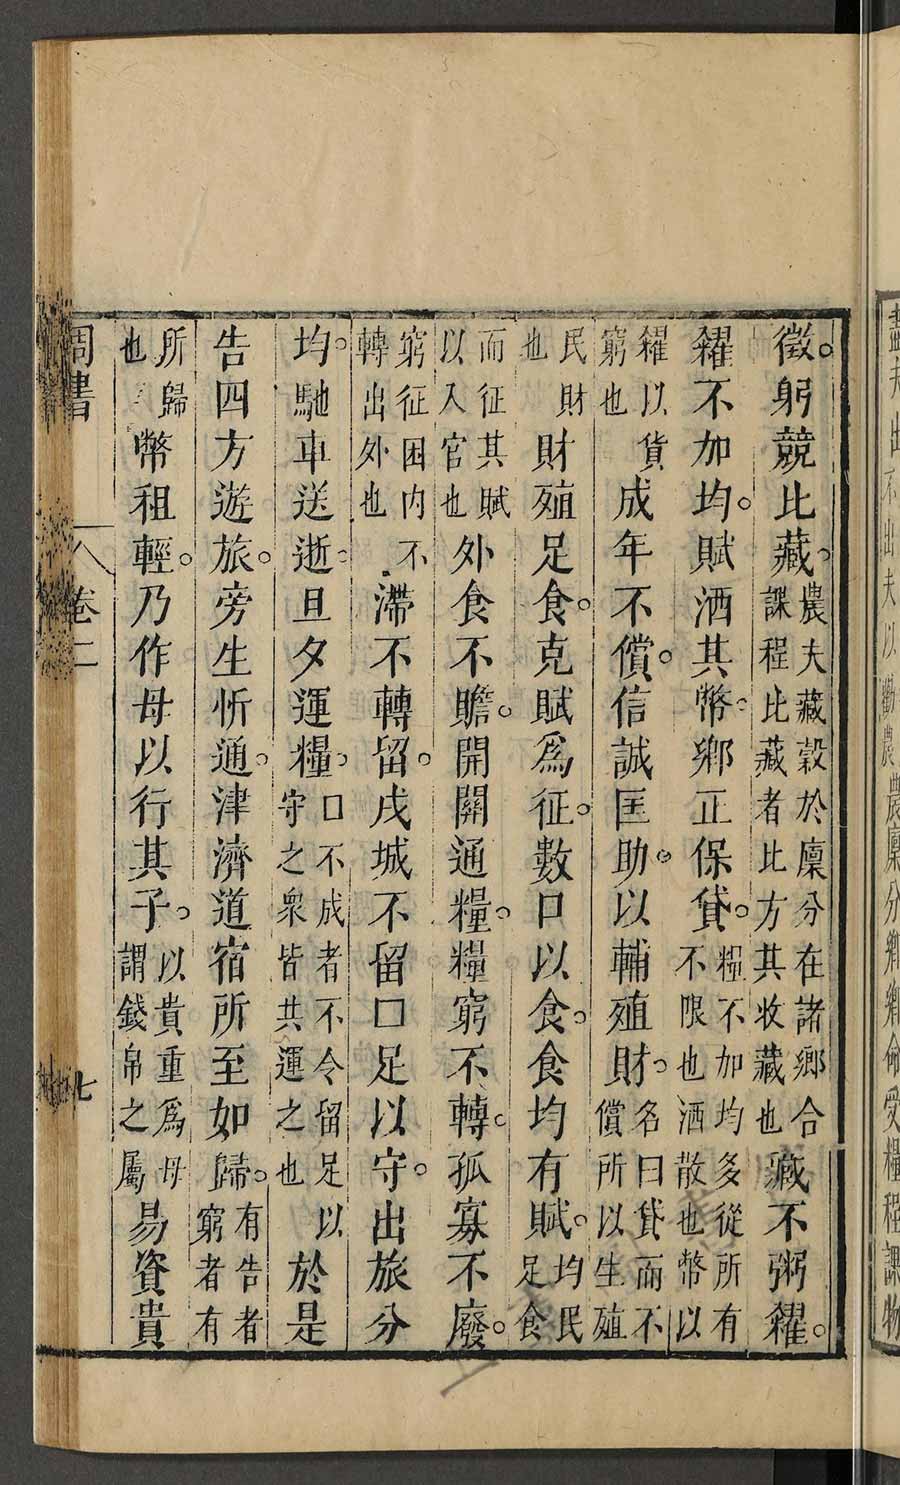 夫出不出夫以勸農農廩分鄉鄉命受糧程課物
徵。躬競比藏。農夫藏穀於廩分在諸鄉合課程比藏者比方其收藏也藏不粥糴。
糴不加均。賦洒其幣。鄉正保貸。糧不加均多從所有不限也洒散也幣以
糴以貨窮也成年不償。信誠匡助。以輔殖財。名曰貸而不償所以生殖
民財也財殖足食。克賦爲征。數口以食。食均有賦。均民足食
而征其賦以入官也外食不贍。開關通糧。糧窮不轉。孤寡不廢。
窮征困内不轉出外也滯不轉留。戍城不留口足以守。出旅分
均。馳車送逝。旦夕運糧。口不成者不令留足以守之衆皆共運之也於是
告四方遊旅。旁生忻通。津濟道宿所至如歸。有告者窮者有
所歸也幣租輕。乃作母以行其子。以貴重爲母謂錢帛之屬易資貴
周書 卷二 七